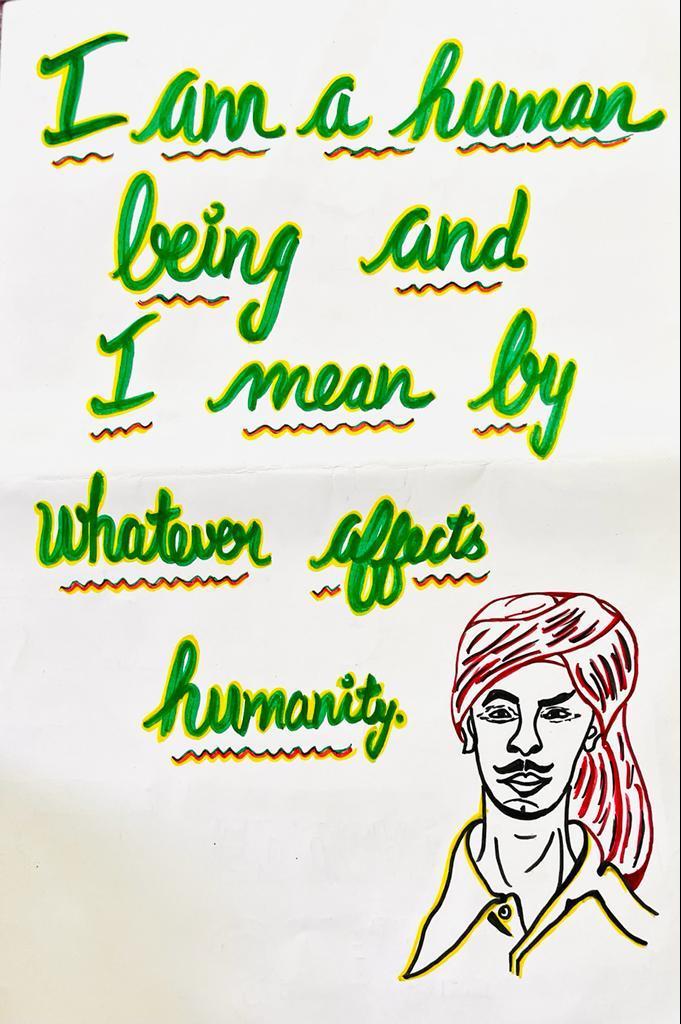 I am a human
being and
I mean by
whatever affects
humanity.